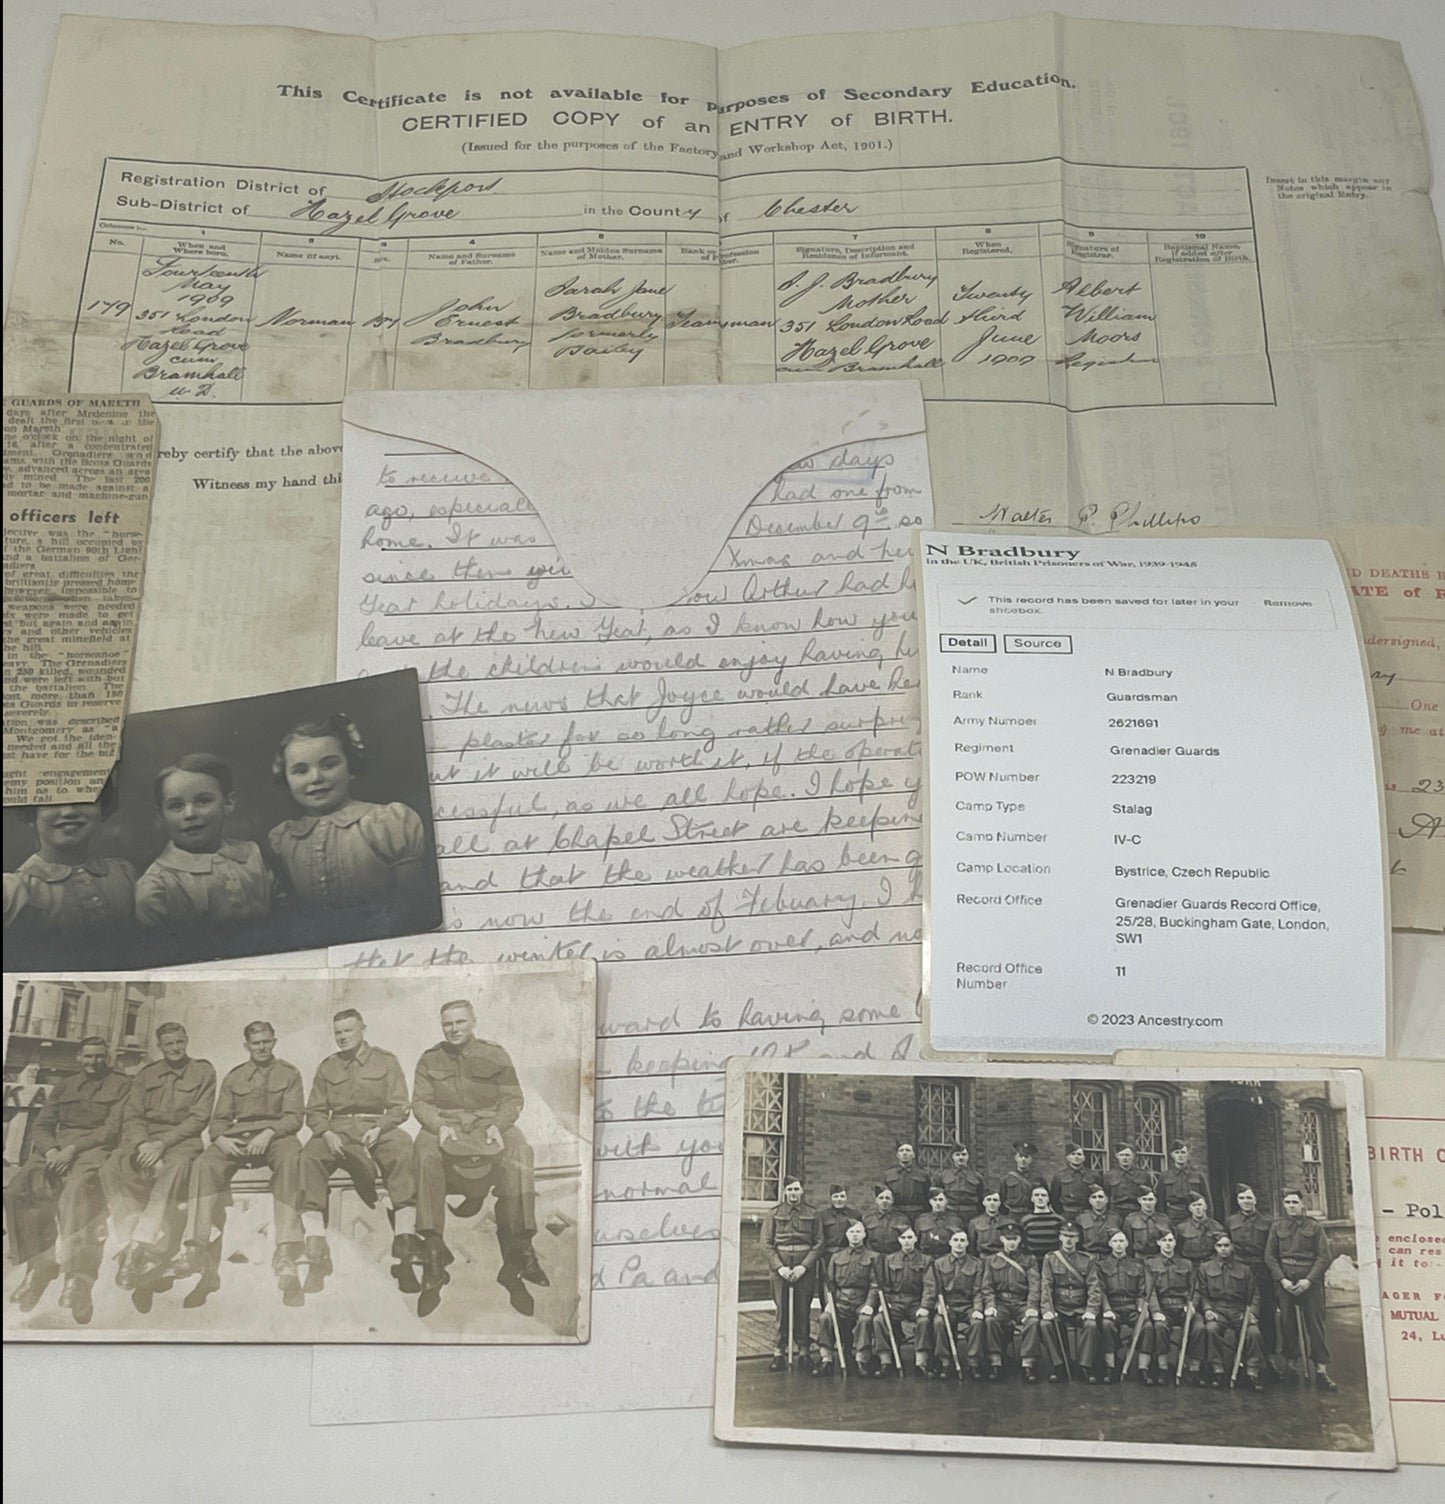 This Certificate is not available for purposes of Secondary Education.
CERTIFIED COPY of an ENTRY of BIRTH.
(Issued for the purposes of the Factory and Workshop Act, 1901.)
Registration District of Stockport
Sub-District of Hazel Grove in the County of Chester
Insert in this margin any
Notes which appear in
the original Entry.
Columns:— 1 2 3 4 5 7 8 9 10
No.
When and
Where born.
Name if any.
Name and Surname
of Father.
Name and Maiden Surname
of Mother.
Rank or Profession
Signature, Description and
Residence of Informant.
When
Registered.
Signature of
Registrar.
Baptismal Name,
if added after
Registration of Birth.
179
Fourteenth
May
1909
351 London
Road
Hazel Grove
cum
Bramhall
U.D.
Norman
Boy
John
Ernest
Bradbury
Sarah Jane
Bradbury
formerly
Bailey
Teamsman
S. J. Bradbury
Mother
351 London Road
Hazel Grove
cum Bramhall
Twenty
third
June
1909
Albert
William
Moors
Registrar
reby certify that the above
Witness my hand thi
Walter P. Phillips
GUARDS OF MARETH
days after Medenine the
dealt the first blow in the
on Mareth
ne o'clock on the night of
16, after a concentrated
ment, Grenadiers and
ams, with the Scots Guards
e, advanced across an area
ly mined. The last 200
ad to be made against a
mortar and machine-gun
officers left
jective was the "horse-
ture, a hill occupied by
f the German 90th Light
and a battalion of Ger-
adiers
of great difficulties the
brilliantly pressed home
however, impossible to
weapons were needed
ts were made to get
d but again and again
rs and other vehicles
the great minefield at
he hill.
in the "horseshoe"
eavy. The Grenadiers
n 250 killed, wounded
nd were left with but
the battalion. The
ost more than 150
ts Guards in reserve
severely.
tion was described
Montgomery as "a
We got the iden-
needed and all the
st have for the big
ught engagement
emy position an
him as to whe
ould fall
to receive
ew days
ago, especiall
had one from
home. It was
December 9th so
since then
Xmas and
Year holidays.
Arthur had h
leave at the New Year, as I know how you
the children would enjoy having h
The news that Joyce would have
plaster for so long rather surpri
ut it will be worth it, if the operati
cessful, as we all hope. I hope y
all at Chapel Street are keepin
and that the weather has been g
is now the end of Febuary, I h
that the winter is almost over, and no
ward to having some
keeping and
to the
with yo
normal
urselves
d Pa and
N Bradbury
in the UK, British Prisoners of War, 1939-1945
This record has been saved for later in your
shoebox.
Remove
Detail Source
Name N Bradbury
Rank Guardsman
Army Number 2621691
Regiment Grenadier Guards
POW Number 223219
Camp Type Stalag
Camp Number IV-C
Camp Location Bystrice, Czech Republic
Record Office Grenadier Guards Record Office,
25/28, Buckingham Gate, London,
SW1
Record Office
Number
11
© 2023 Ancestry.com
D DEATHS R
ATE of R
dersigned,
One
g me at
23
BIRTH C
- Pol
enclosed
can res
it to -
AGER F
MUTUAL
24, Lu